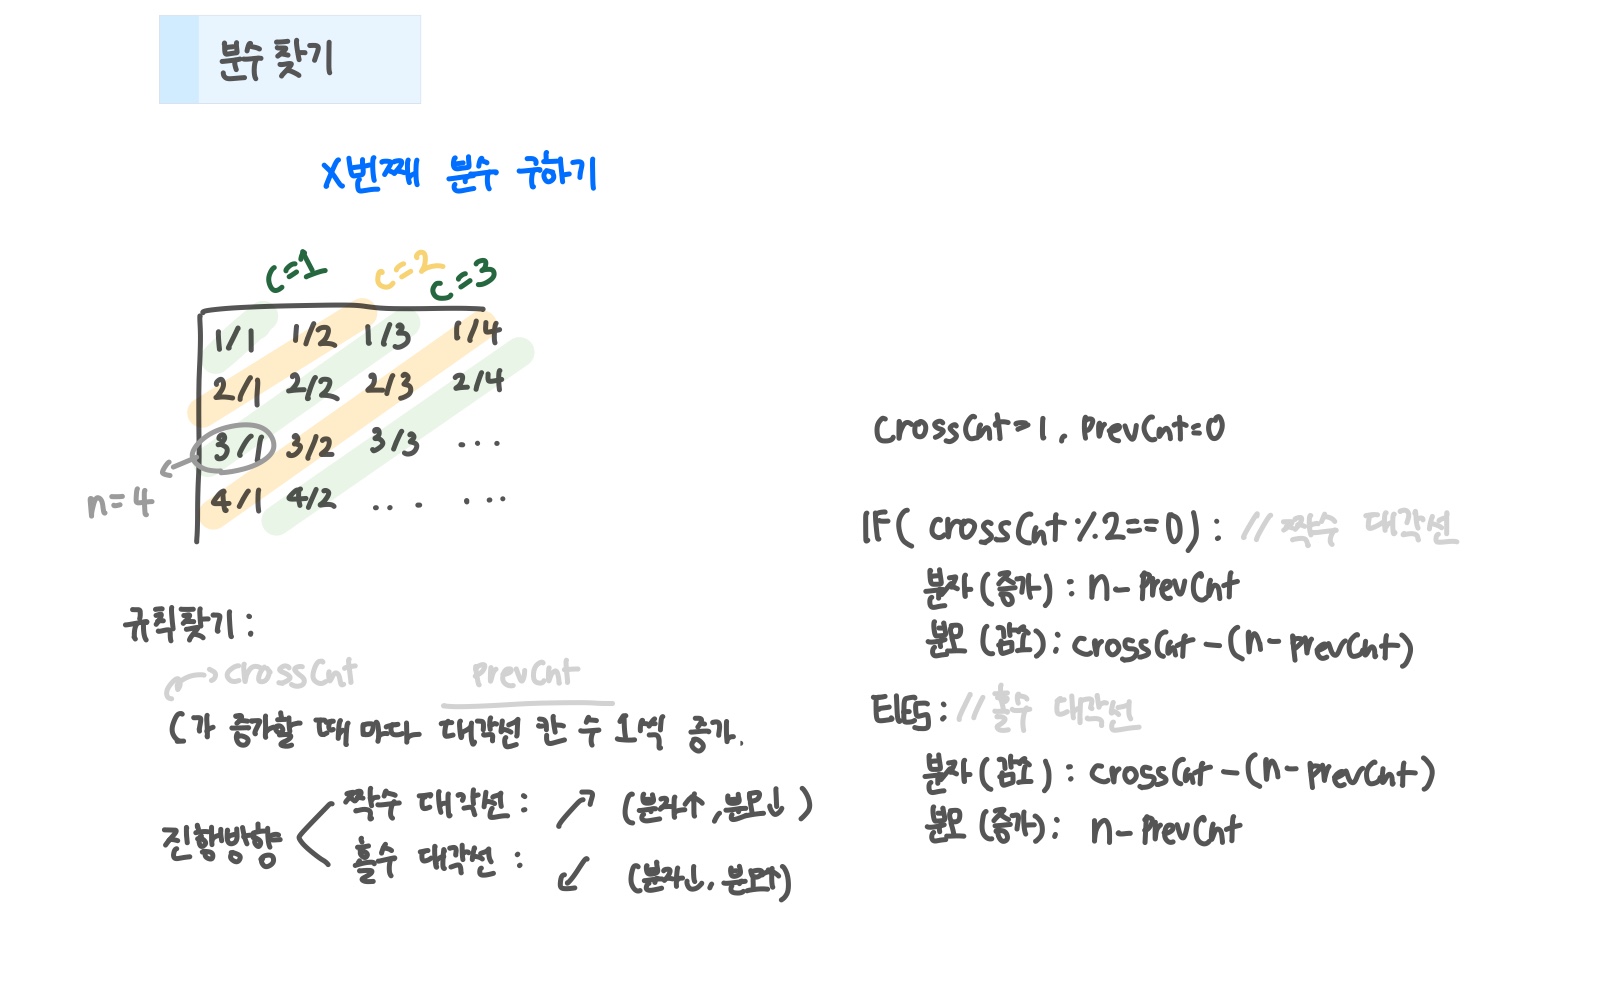 분수 찾기
X번째 분수 구하기
C=1 C=2 C=3
1/1 1/2 1/3 1/4
2/1 2/2 2/3 2/4
3/1 3/2 3/3 ...
4/1 4/2 ... ...
n=4
규칙찾기 :
crossCnt prevCnt
C가 증가할 때 마다 대각선 칸 수 1씩 증가.
진행방향
짝수 대각선 : ↗ (분자↑, 분모↓)
홀수 대각선 : ↙ (분자↓, 분모↑)
crossCnt=1, prevCnt=0
IF( crossCnt%2==0) : // 짝수 대각선
분자(증가) : n-prevCnt
분모 (감소) : crossCnt-(n-prevCnt)
ElES : // 홀수 대각선
분자(감소) : crossCnt-(n-prevCnt)
분모 (증가) : n-prevCnt